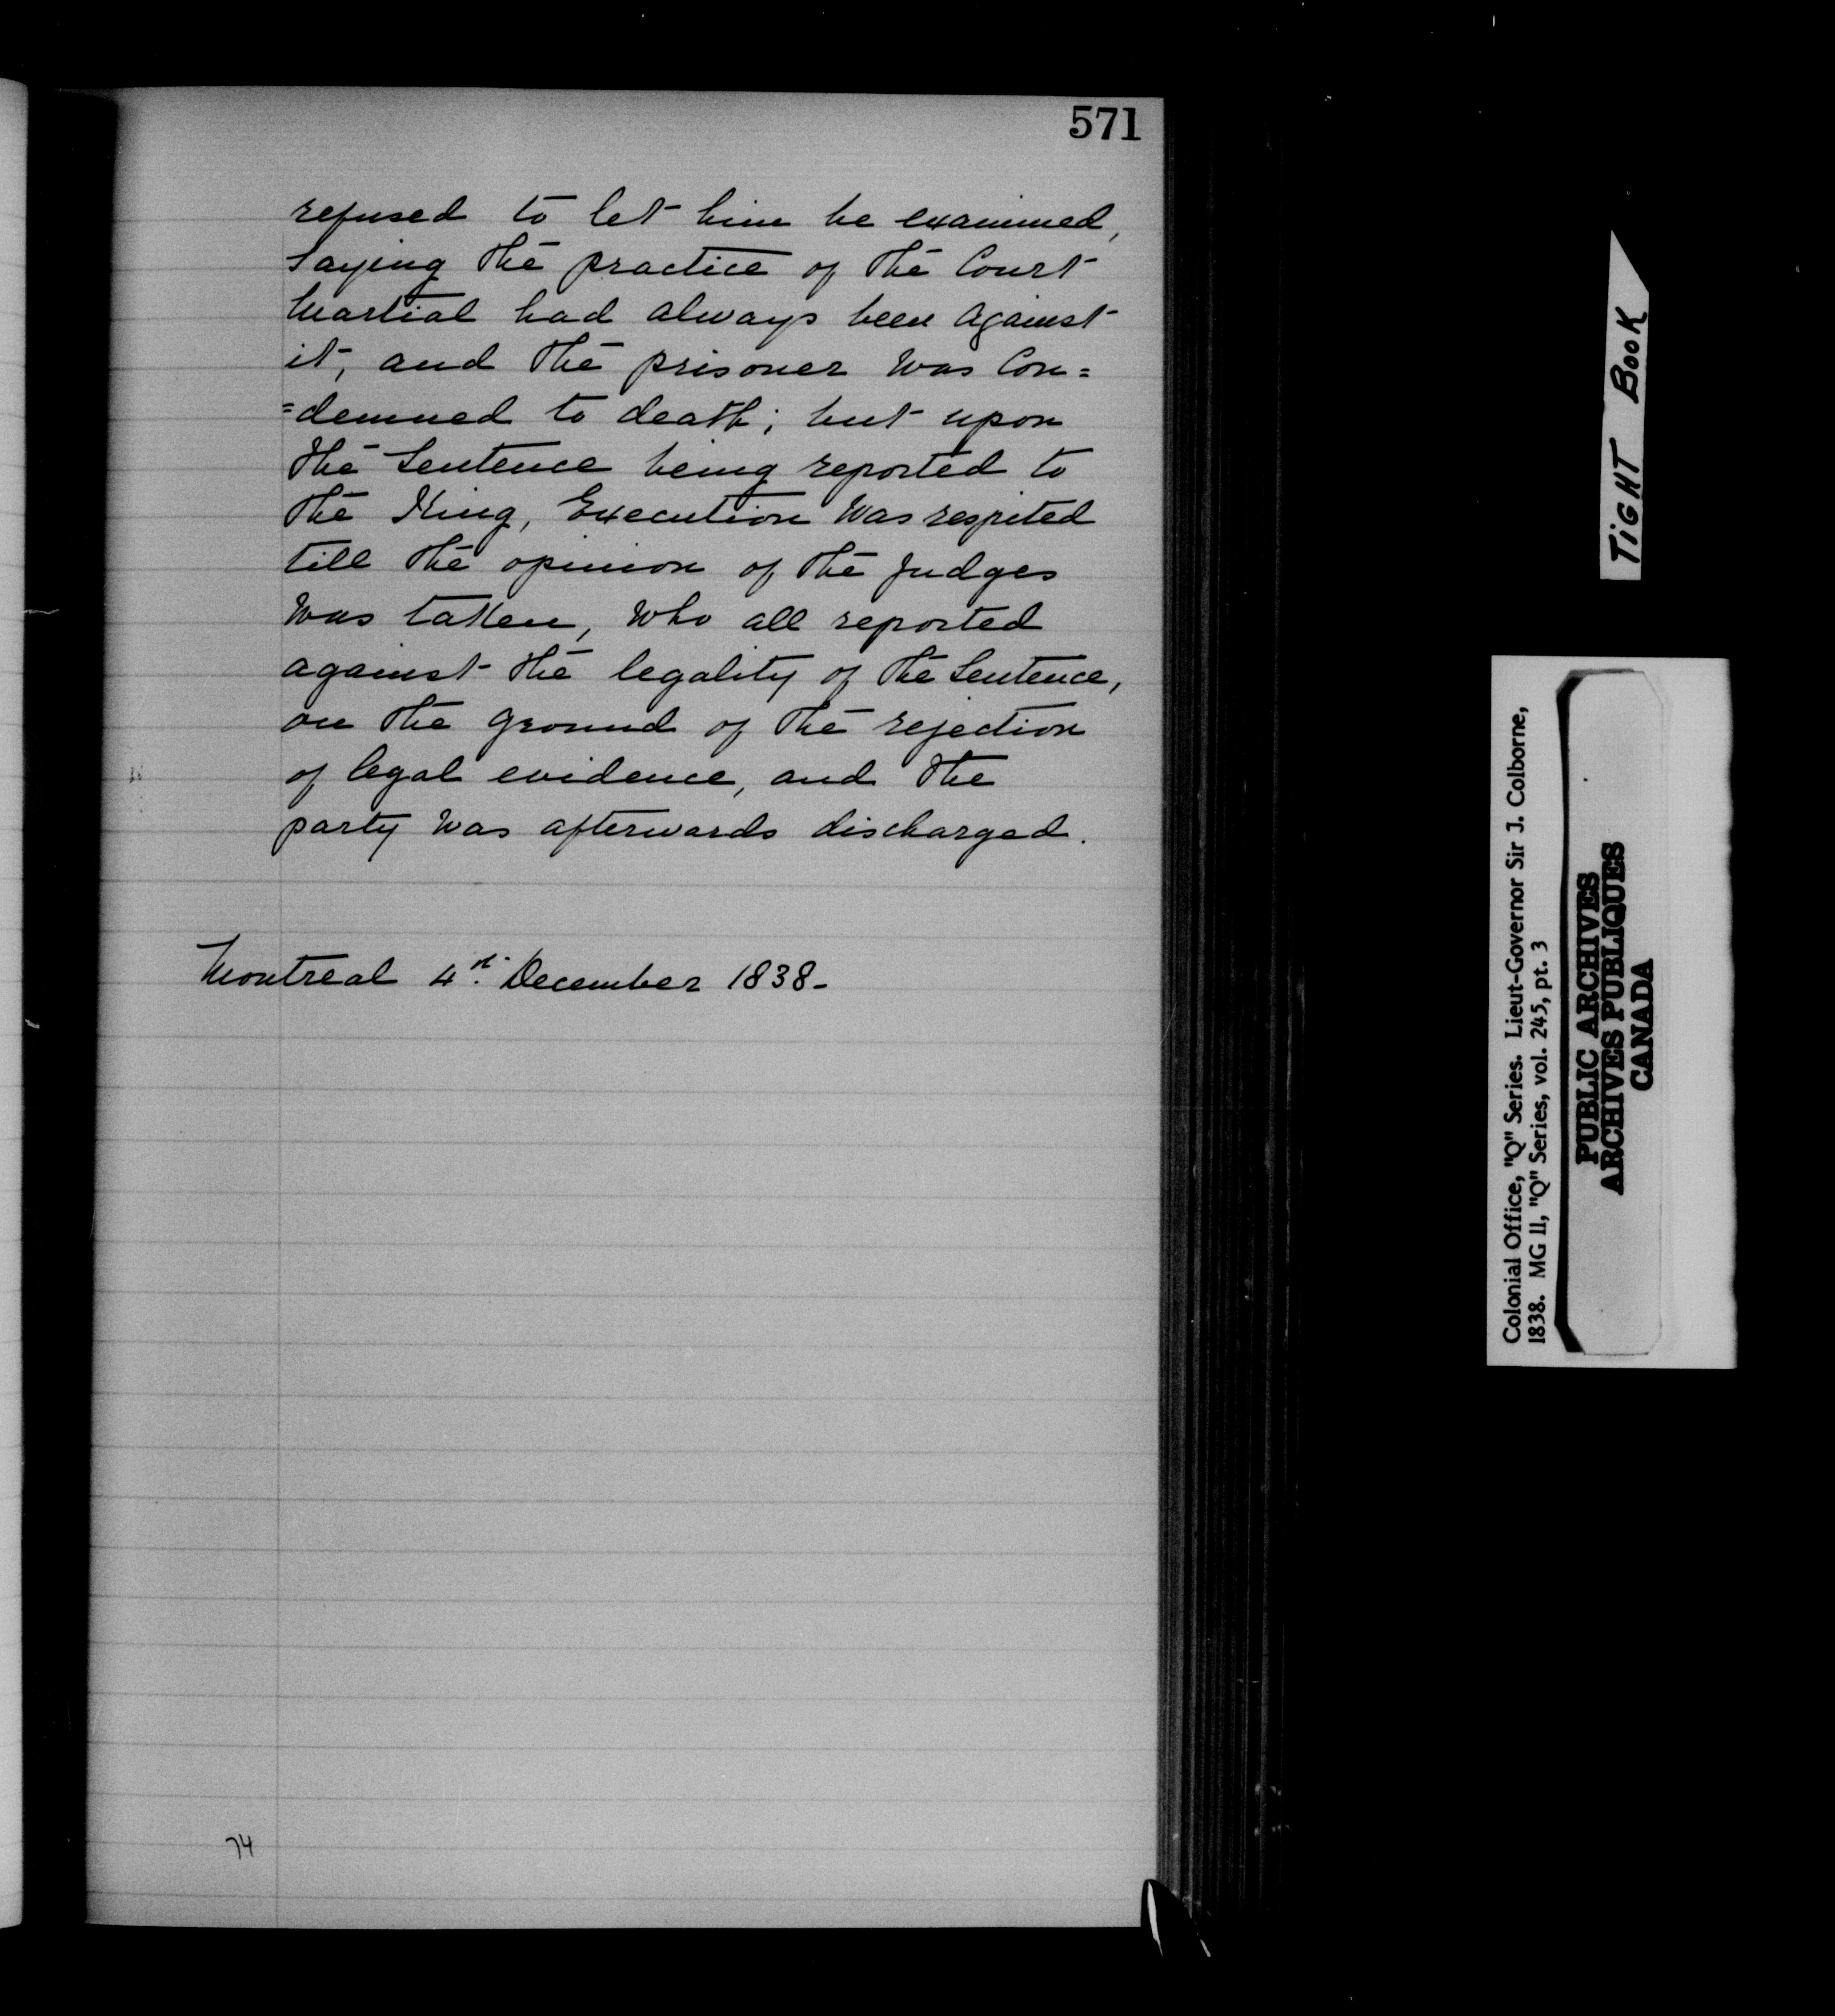 571
refused to let him be examined,
saying the practice of the Court
Martial had always been against
it, and the prisoner was Con=
=demned to death; but upon
the Sentence being reported to
the King, Execution was respited
till the opinion of the Judges
was taken, who all reported
against the legality of the Sentence,
on the ground of the rejection
of legal evidence, and the
party was afterwards discharged.
Montreal 4th. December 1838-
74
TIGHT BOOK
Colonial Office, "Q" Series. Lieut-Governor Sir J. Colborne,
1838. MG 11, "Q" Series, vol. 245, pt. 3
PUBLIC ARCHIVES
ARCHIVES PUBLIQUES
CANADA